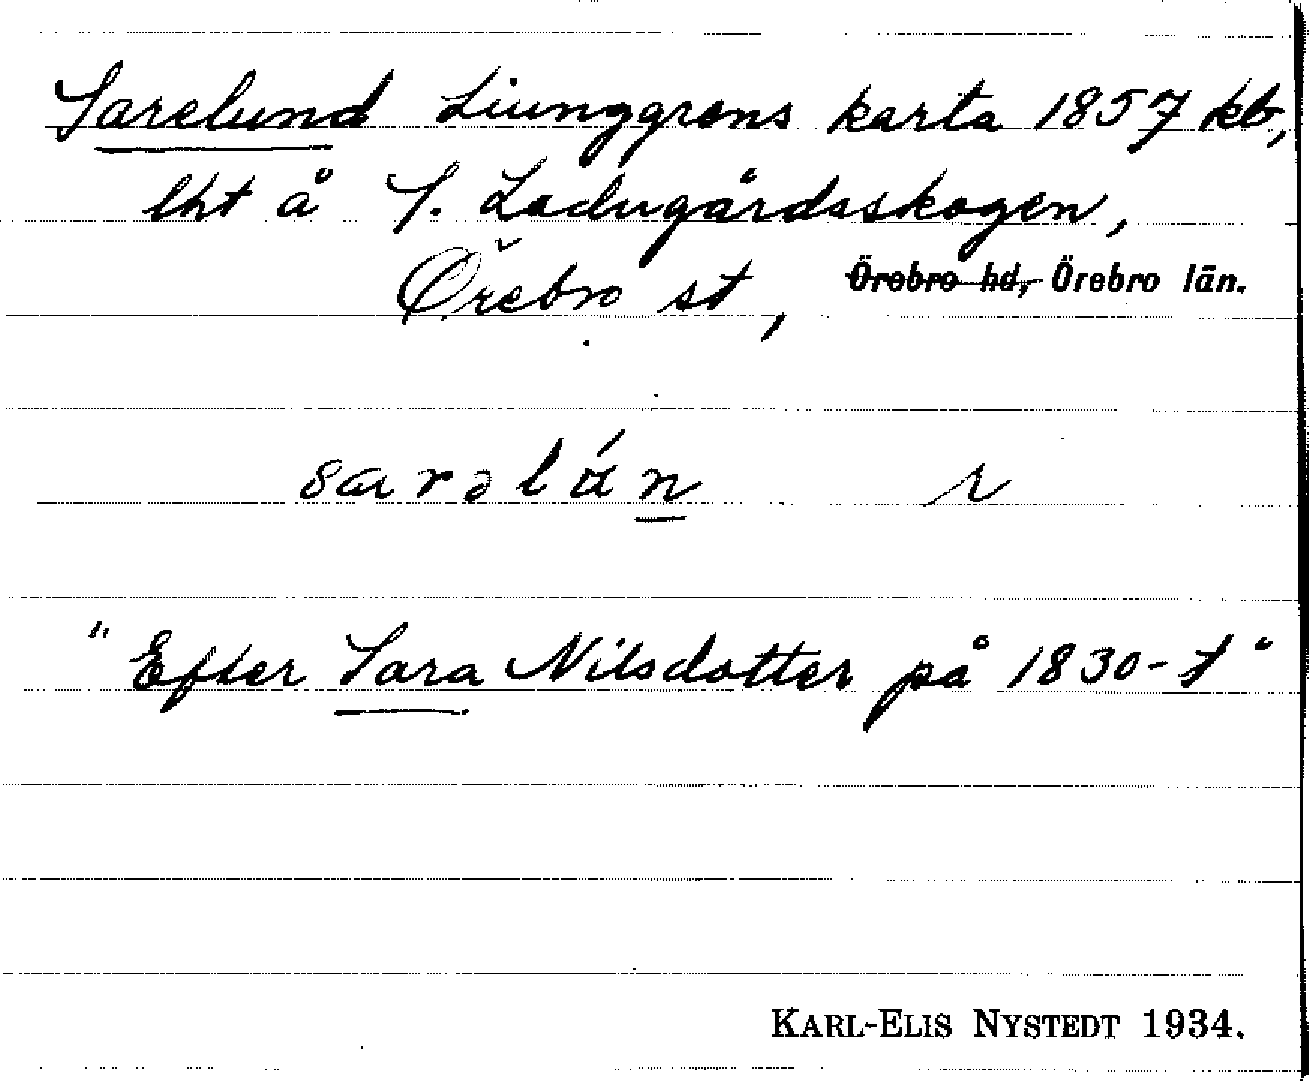 Sarelund Liunggrens karta 1857 kb,
lht å S. Ladugårdsskogen,
Örebro st, Örebro hd, Örebro län.
sarəlán r
"Efter Sara Nilsdotter på 1830-t"
KARL-ELIS NYSTEDT 1934.